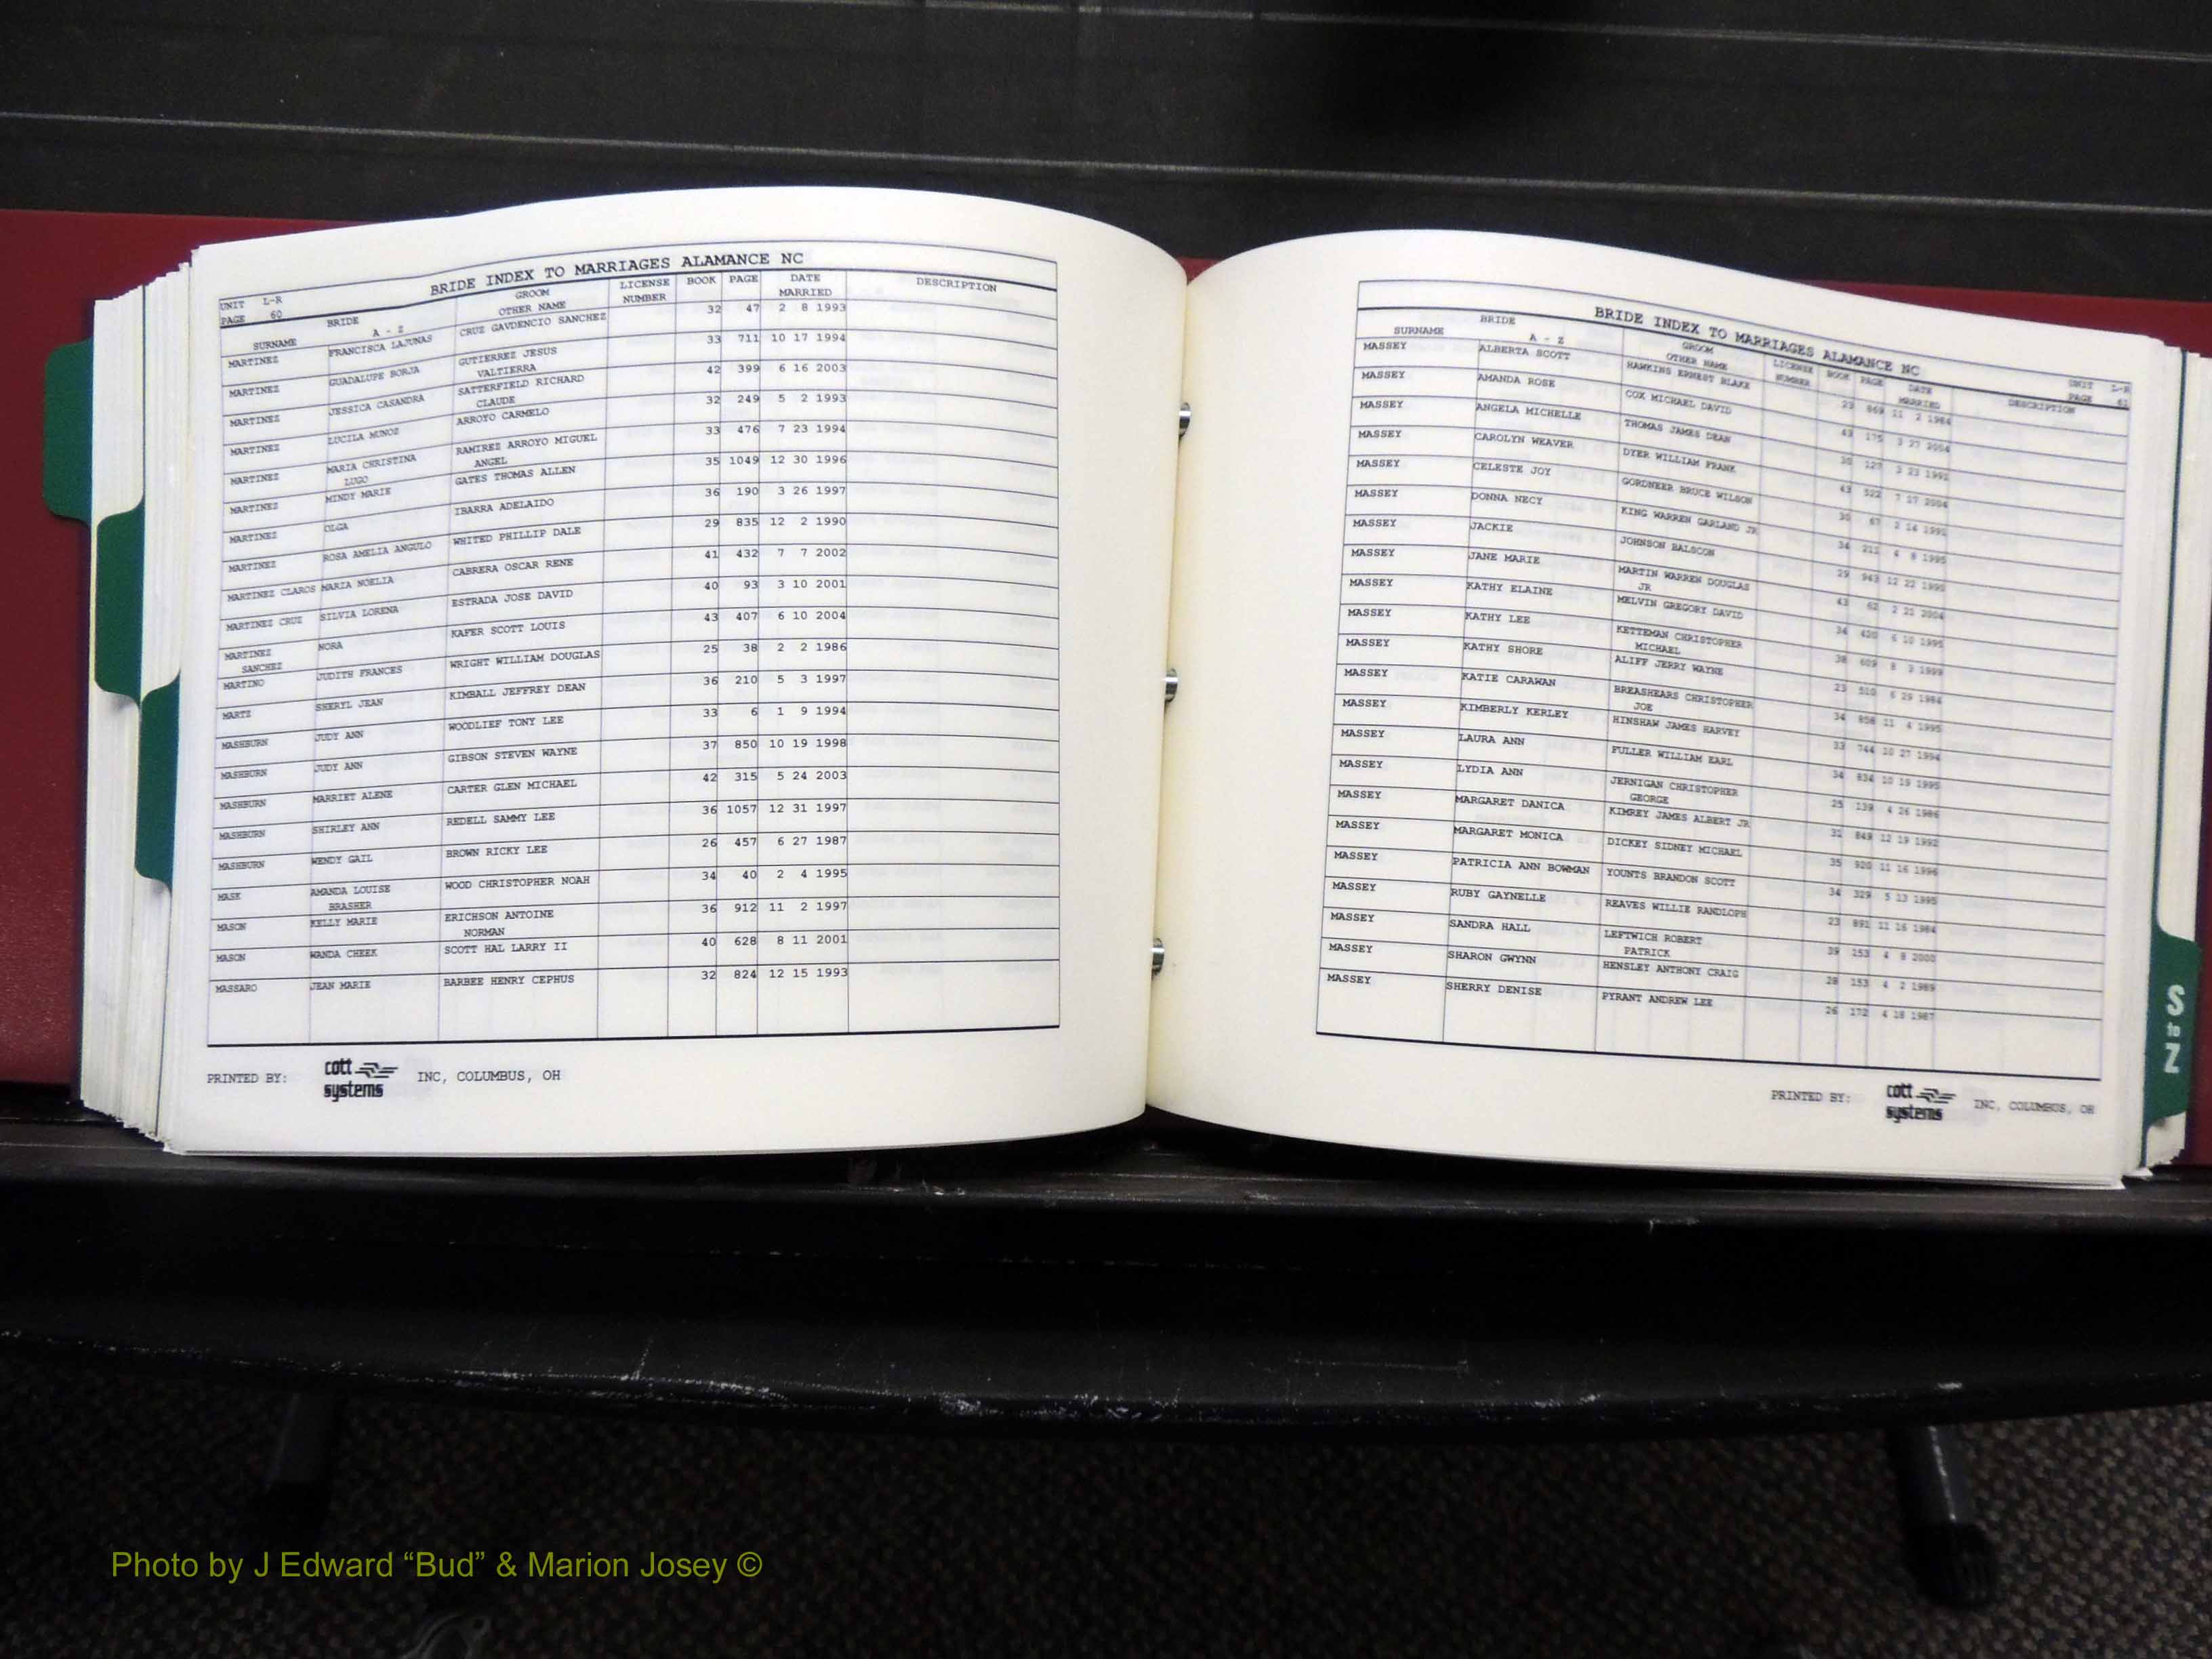 BRIDE INDEX TO MARRIAGES ALAMANCE NC
UNIT L-R
PAGE 60
SURNAME BRIDE A - Z GROOM OTHER NAME LICENSE NUMBER BOOK PAGE DATE MARRIED DESCRIPTION
MARTINEZ FRANCISCA LAJUNAS CRUZ GAVDENCIO SANCHEZ 32 47 2 8 1993
MARTINEZ GUADALUPE BORJA GUTIERREZ JESUS VALTIERRA 33 711 10 17 1994
MARTINEZ JESSICA CASANDRA SATTERFIELD RICHARD CLAUDE 42 399 6 16 2003
MARTINEZ LUCILA MUNOZ ARROYO CARMELO 32 249 5 2 1993
MARTINEZ MARIA CHRISTINA LUGO RAMIREZ ARROYO MIGUEL ANGEL 33 476 7 23 1994
MARTINEZ MINDY MARIE GATES THOMAS ALLEN 35 1049 12 30 1996
MARTINEZ OLGA IBARRA ADELAIDO 36 190 3 26 1997
MARTINEZ ROSA AMELIA ANGULO WHITED PHILLIP DALE 29 835 12 2 1990
MARTINEZ CLAROS MARIA NOELIA CABRERA OSCAR RENE 41 432 7 7 2002
MARTINEZ CRUZ SILVIA LORENA ESTRADA JOSE DAVID 40 93 3 10 2001
MARTINEZ SANCHEZ NORA KAFER SCOTT LOUIS 43 407 6 10 2004
MARTINO JUDITH FRANCES WRIGHT WILLIAM DOUGLAS 25 38 2 2 1986
MARTZ SHERYL JEAN KIMBALL JEFFREY DEAN 36 210 5 3 1997
MASHBURN JUDY ANN WOODLIEF TONY LEE 33 6 1 9 1994
MASHBURN JUDY ANN GIBSON STEVEN WAYNE 37 850 10 19 1998
MASHBURN HARRIET ALENE CARTER GLEN MICHAEL 42 315 5 24 2003
MASHBURN SHIRLEY ANN REDELL SAMMY LEE 36 1057 12 31 1997
MASHBURN WENDY GAIL BROWN RICKY LEE 26 457 6 27 1987
MASK AMANDA LOUISE BRASHER WOOD CHRISTOPHER NOAH 34 40 2 4 1995
MASON KELLY MARIE ERICHSON ANTOINE NORMAN 36 912 11 2 1997
MASON WANDA CHEEK SCOTT HAL LARRY II 40 628 8 11 2001
MASSARO JEAN MARIE BARBEE HENRY CEPHUS 32 824 12 15 1993
PRINTED BY: cott systems INC, COLUMBUS, OH
BRIDE INDEX TO MARRIAGES ALAMANCE NC
UNIT L-R
PAGE 61
SURNAME BRIDE A - Z GROOM OTHER NAME LICENSE NUMBER BOOK PAGE DATE MARRIED DESCRIPTION
MASSEY ALBERTA SCOTT HAWKINS ERNEST BLAKE 23 869 11 2 1984
MASSEY AMANDA ROSE COX MICHAEL DAVID 43 175 3 27 2004
MASSEY ANGELA MICHELLE THOMAS JAMES DEAN 30 127 3 23 1991
MASSEY CAROLYN WEAVER DYER WILLIAM FRANK 43 522 7 17 2004
MASSEY CELESTE JOY GORDNEER BRUCE WILSON 30 67 2 14 1991
MASSEY DONNA NECY KING WARREN GARLAND JR 34 211 4 8 1995
MASSEY JACKIE JOHNSON BALSOON 29 943 12 22 1990
MASSEY JANE MARIE MARTIN WARREN DOUGLAS JR 43 62 2 21 2004
MASSEY KATHY ELAINE MELVIN GREGORY DAVID 34 430 6 10 1995
MASSEY KATHY LEE KETTEMAN CHRISTOPHER MICHAEL 38 609 8 3 1999
MASSEY KATHY SHORE ALIFF JERRY WAYNE 23 510 6 29 1984
MASSEY KATIE CARAWAN BREASHEARS CHRISTOPHER JOE 34 858 11 4 1995
MASSEY KIMBERLY KERLEY HINSHAW JAMES HARVEY 33 744 10 27 1994
MASSEY LAURA ANN FULLER WILLIAM EARL 34 834 10 19 1995
MASSEY LYDIA ANN JERNIGAN CHRISTOPHER GEORGE 25 139 4 26 1986
MASSEY MARGARET DANICA KIMREY JAMES ALBERT JR 31 849 12 19 1992
MASSEY MARGARET MONICA DICKEY SIDNEY MICHAEL 35 920 11 16 1996
MASSEY PATRICIA ANN BOWMAN YOUNTS BRANDON SCOTT 34 329 5 13 1995
MASSEY RUBY GAYNELLE REAVES WILLIE RANDLOPH 23 891 11 16 1984
MASSEY SANDRA HALL LEFTWICH ROBERT PATRICK 39 153 4 8 2000
MASSEY SHARON GWYNN HENSLEY ANTHONY CRAIG 28 153 4 2 1989
MASSEY SHERRY DENISE PYRANT ANDREW LEE 26 172 4 18 1987
PRINTED BY: cott systems INC, COLUMBUS, OH
S to Z
Photo by J Edward “Bud” & Marion Josey ©